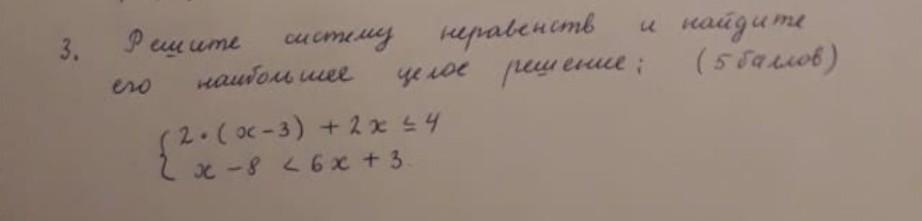 3. Решите систему неравенств и найдите
его наибольшее целое решение; (5 баллов)
{ 2•(x-3) + 2x ≤ 4
x - 8 < 6x + 3.